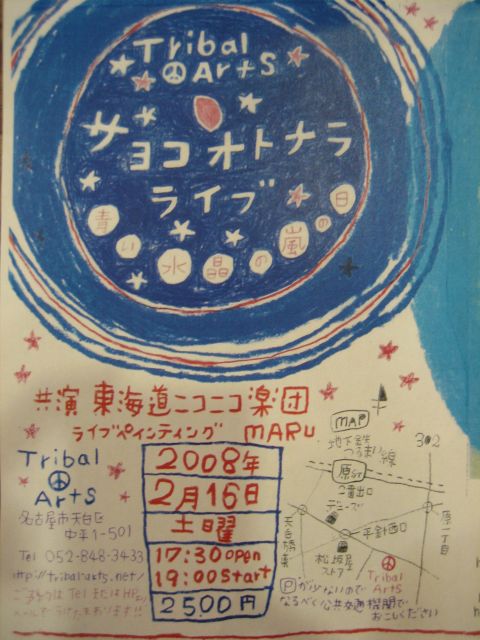 Tribal
Arts
サヨコオトナラ
ライブ
青い水晶の嵐の日
共演 東海道ニコニコ楽団
ライブペインティング MARU
Tribal
Arts
名古屋市天白区
中平1-501
Tel 052-848-3433
http://tribal-arts.net/
2008年
2月16日
土曜
17:30open
19:00Start
2500円
MAP
地下鉄
つるまい線
302
原駅
2番出口
デニーズ
天白橋東
平針西口
原一丁目
松坂屋
ストア
Tribal
Arts
Pが少ないので
なるべく公共交通機関で
おこしください